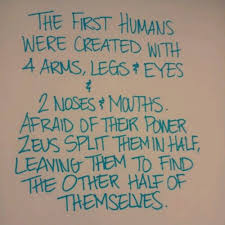 THE FIRST HUMANS
WERE CREATED WITH
4 ARMS, LEGS & EYES
&
2 NOSES & MOUTHS.
AFRAID OF THEIR POWER
ZEUS SPLIT THEM IN HALF,
LEAVING THEM TO FIND
THE OTHER HALF OF
THEMSELVES.